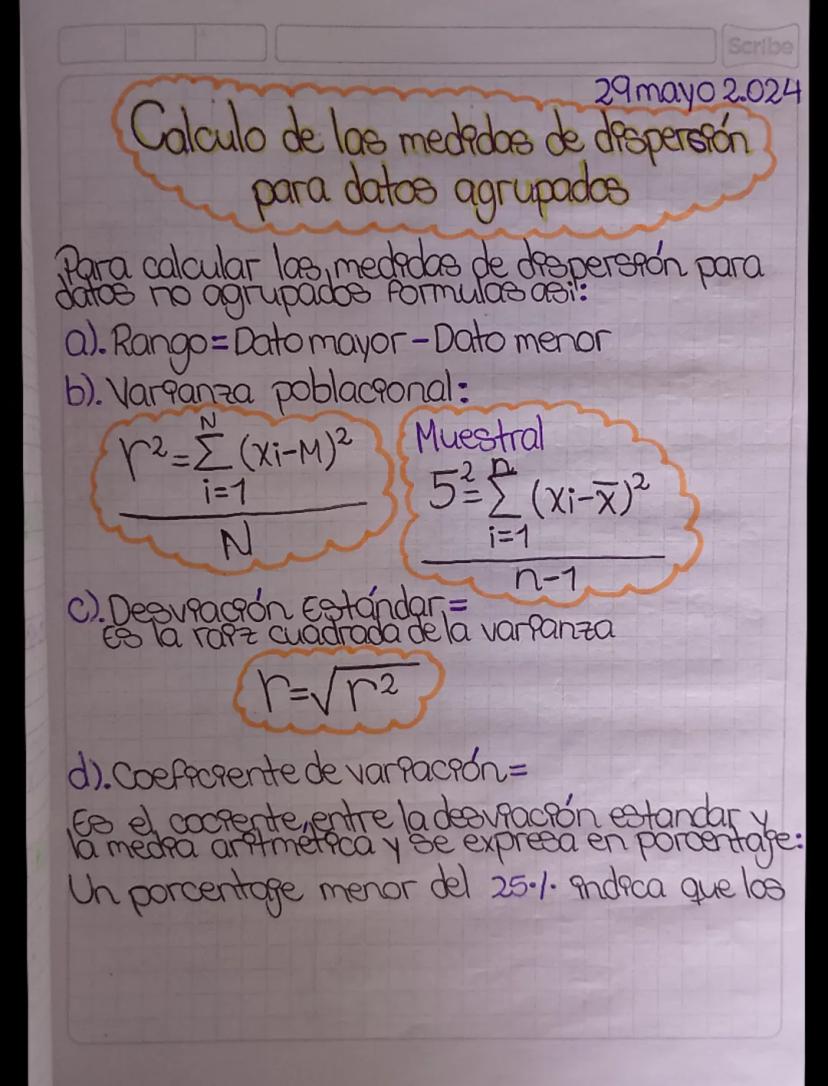 Scribe
29 mayo 2.024
Calculo de las medidas de dispersión
para datos agrupados
Para calcular las medidas de dispersión para
datos no agrupados formulas asi:
a). Rango = Dato mayor - Dato menor
b). Varianza poblacional:
r² = N Σ i=1 (xi - M)²
N
Muestral
5² = n Σ i=1 (xi - x̄)²
n-1
c). Desviación Estándar =
Es la raiz cuadrada de la varianza
r = √r²
d). Coeficiente de variación =
Es el cociente, entre la desviación estandar y
la media aritmética y se expresa en porcentaje:
Un porcentaje menor del 25·/· indica que los